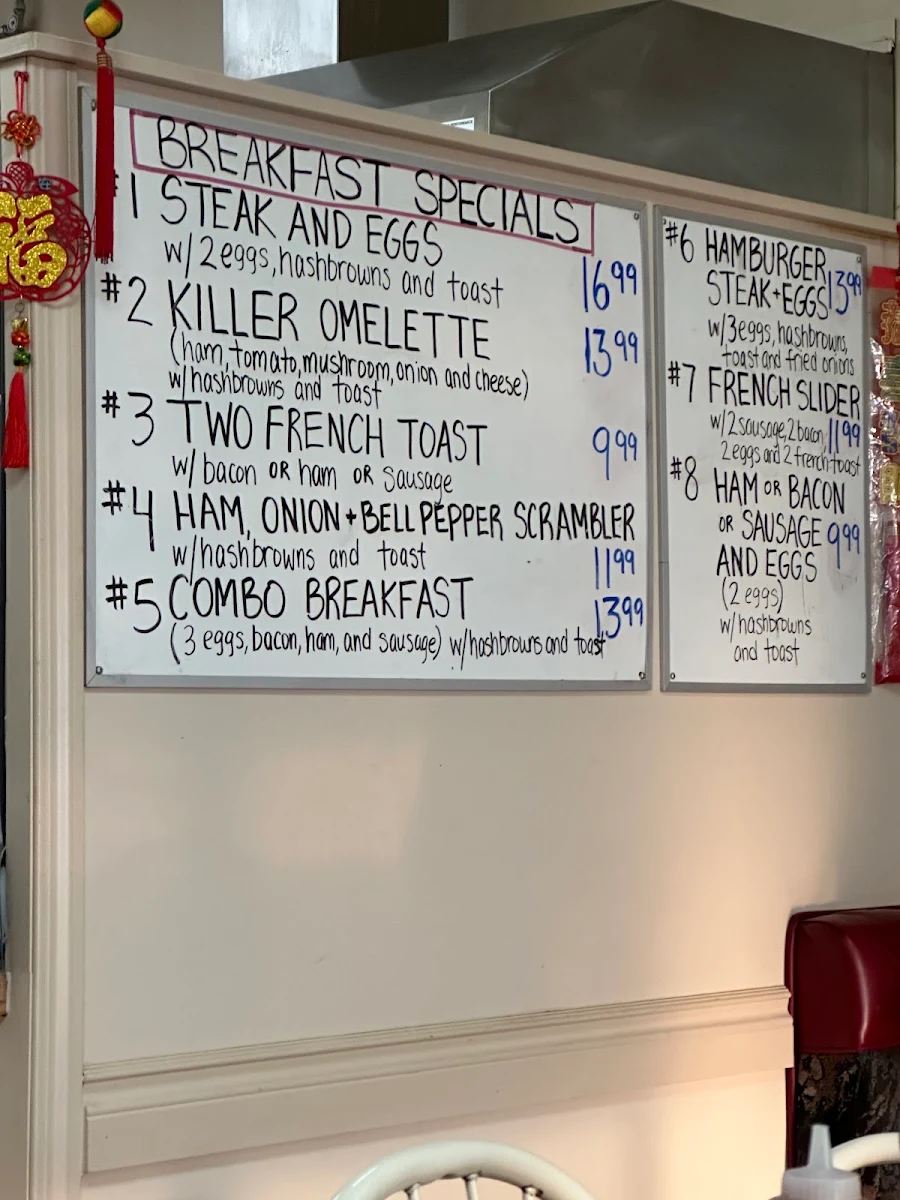 BREAKFAST SPECIALS
#1 STEAK AND EGGS
w/2eggs, hashbrowns and toast 16.99
#2 KILLER OMELETTE
(ham, tomato, mushroom, onion and cheese) 13.99
w/hashbrowns and toast
#3 TWO FRENCH TOAST 9.99
w/bacon OR ham OR sausage
#4 HAM, ONION + BELL PEPPER SCRAMBLER
w/hashbrowns and toast 11.99
#5 COMBO BREAKFAST 13.99
(3 eggs, bacon, ham, and sausage) w/hashbrowns and toast
#6 HAMBURGER
STEAK + EGGS 13.99
w/3eggs, hashbrowns,
toast and fried onions
#7 FRENCH SLIDER
w/2sausage, 2 bacon, 11.99
2eggs and 2 french toast
#8 HAM OR BACON
OR SAUSAGE 9.99
AND EGGS
(2 eggs)
w/hashbrowns
and toast
福